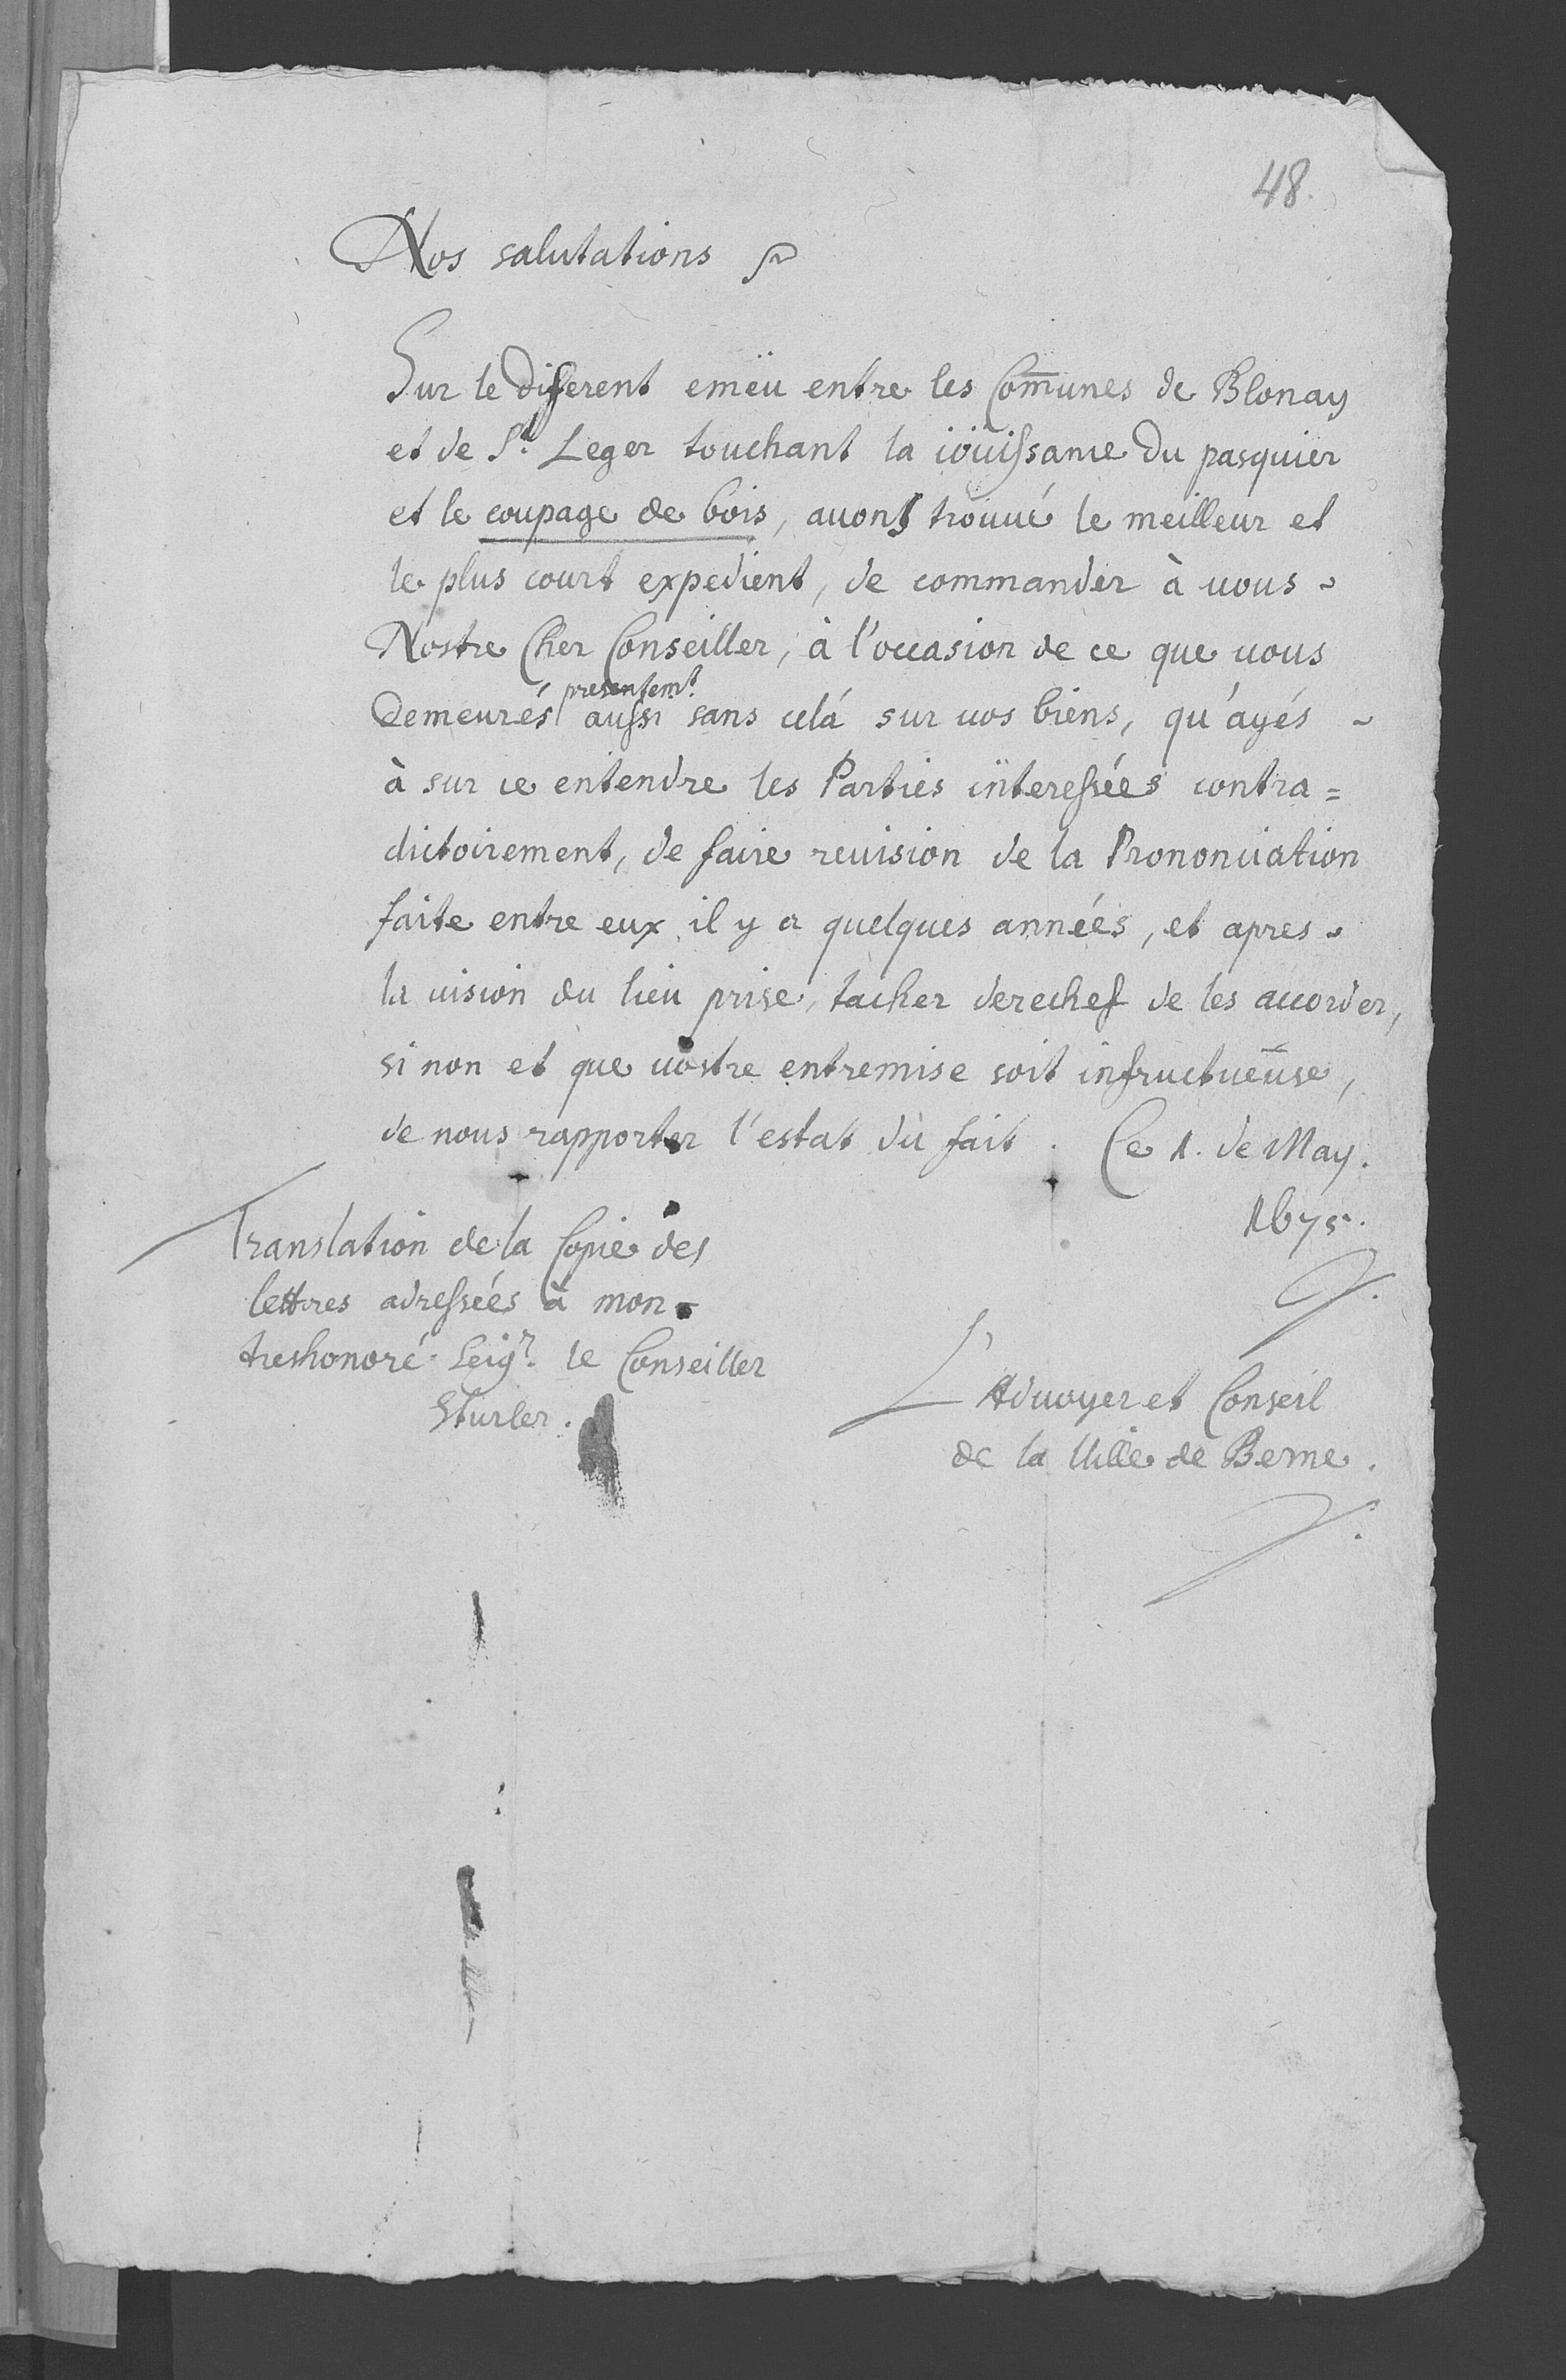 48.
Nos salutations
Sur le Different emëu entre les Com̄unes de Blonay
et de St. Leger touchant la iöuissance du pasquier
et le coupage de bois, auons trouué le meilleur et
le plus court expedient, de commander à uous
Nostre Cher Conseiller, à l'occasion de ce que uous
presentemt.
demeurés aussi sans celá sur uos biens, qu'ayés
à sur ce entendre les Parties interessées contra=
dictoirement, de faire reuision de la Prononciation
faite entre eux il y a quelques années, et apres
la uision du lieu prise, tacher derechef de les accorder,
si non et que uostre entremise soit infructueuse,
de nous rapporter l'estat du fait. Ce 1. de May.
1675.
Translation de la Copie des
lettres adressées à mon
treshonoré Seigr. le Conseiller
Sturler.
L'Aduoyer et Conseil
de la Uille de Berne.